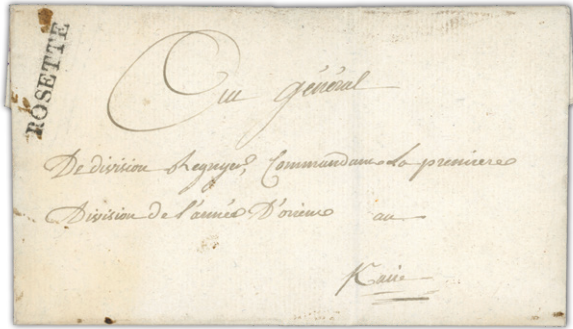 ROSETTE
Au général
De division Regnyer, Commandant La premiere
Division de l'armée D'orient au
Kaire